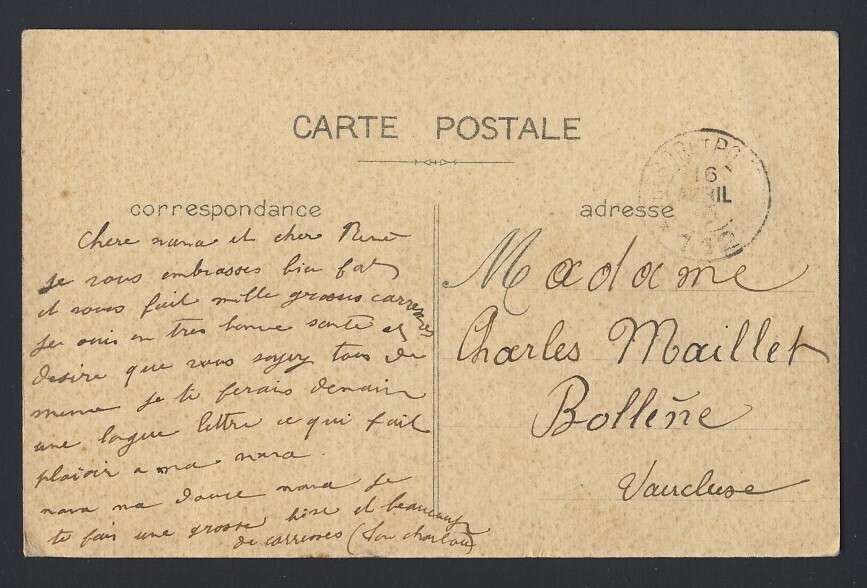 069
CARTE POSTALE
correspondance
adresse
16
AVRIL
Chere nana et cher René
je vous embrasses bien fort
et vous fait mille grosses carresses
je suis en tres bonne santé et
desire que vous soyez tous de
meme je te ferais demain
une logue lettre ce qui fait
plaisir a ma nana.
nana ma douce nana je
te fais une grosse bise et beaucoup
de carresses (ton charlou)
Madame
Charles Maillet
Bollène
Vaucluse